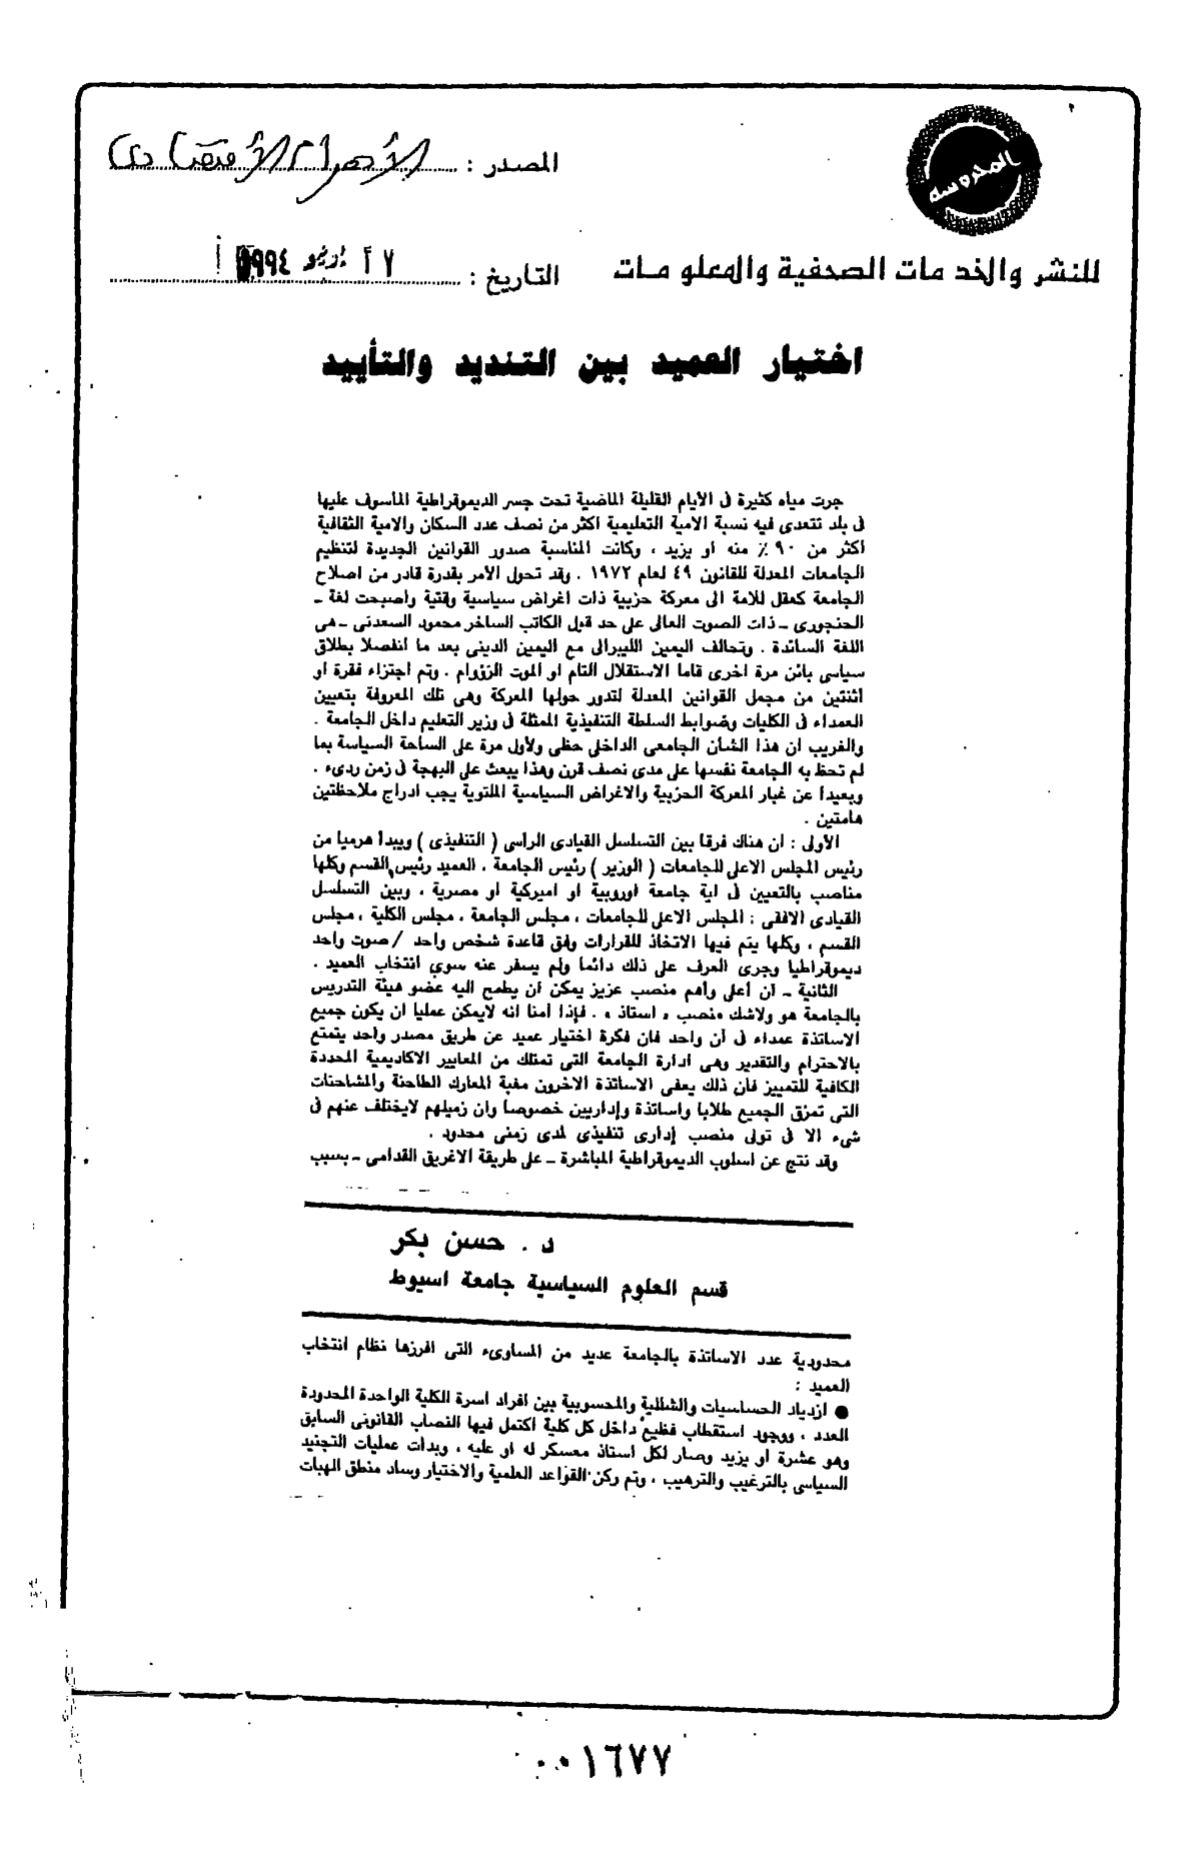 المصدر : الأهرام الاقتصادى
المحروسه
للنشر والخدمات الصحفية والمعلومات
التاريخ : ١٩٩٤
اختيار العميد بين التنديد والتأييد
جرت مياه كثيرة فى الأيام القليلة الماضية تحت جسر الديموقراطية المأسوف عليها
فى بلد تتعدى فيه نسبة الامية التعليمية اكثر من نصف عدد السكان والامية الثقافية
أكثر من ٩٠ ٪ منه او يزيد ، وكانت المناسبة صدور القوانين الجديدة لتنظيم
الجامعات المعدلة للقانون ٤٩ لعام ١٩٧٢ . وقد تحول الأمر بقدرة قادر من اصلاح
الجامعة كعقل للامة الى معركة حزبية ذات اغراض سياسية وقتية واصبحت لغة ـ
الحنجورى ـ ذات الصوت العالى على حد قول الكاتب الساخر محمود السعدنى ـ هى
اللغة السائدة . وتحالف اليمين الليبرالى مع اليمين الدينى بعد ما انفصلا بطلاق
سياسى بائن مرة اخرى قاما الاستقلال التام او الموت الزؤوام . وتم اجتزاء فقرة او
أثنتين من مجمل القوانين المعدلة لتدور حولها المعركة وهى تلك المعروفة بتعيين
العمداء فى الكليات وضوابط السلطة التنفيذية الممثلة فى وزير التعليم داخل الجامعة .
والغريب ان هذا الشأن الجامعى الداخلى حظى ولأول مرة على الساحة السياسة بما
لم تحظ به الجامعة نفسها على مدى نصف قرن وهذا يبعث على البهجة فى زمن ردىء .
وبعيداً عن غبار المعركة الحزبية والاغراض السياسية الملتوية يجب ادراج ملاحظتين
هامتين .
الأولى : ان هناك فرقا بين التسلسل القيادى الرأسى ( التنفيذى ) ويبدأ هرميا من
رئيس المجلس الاعلى للجامعات ( الوزير ) رئيس الجامعة ، العميد رئيس القسم وكلها
مناصب بالتعيين فى اية جامعة اوروبية او اميركية او مصرية ، وبين التسلسل
القيادى الافقى : المجلس الاعلى للجامعات ، مجلس الجامعة ، مجلس الكلية ، مجلس
القسم ، وكلها يتم فيها الاتخاذ للقرارات وفق قاعدة شخص واحد / صوت واحد
ديموقراطيا وجرى العرف على ذلك دائما ولم يسفر عنه سوى انتخاب العميد .
الثانية ـ أن أعلى وأهم منصب عزيز يمكن أن يطمح اليه عضو هيئة التدريس
بالجامعة هو ولاشك منصب « استاذ » . فإذا امنا انه لايمكن عمليا ان يكون جميع
الاساتذة عمداء فى أن واحد فان فكرة اختيار عميد عن طريق مصدر واحد يتمتع
بالاحترام والتقدير وهى ادارة الجامعة التى تمتلك من المعايير الاكاديمية المحددة
الكافية للتمييز فان ذلك يعفى الاساتذة الاخرون مغبة المعارك الطاحنة والمشاحنات
التى تمزق الجميع طلابا واساتذة وإداريين خصوصا وان زميلهم لايختلف عنهم فى
شىء الا فى تولى منصب إدارى تنفيذى لمدى زمنى محدود .
وقد نتج عن اسلوب الديموقراطية المباشرة ـ على طريقة الاغريق القدامى ـ بسبب
د . حسن بكر
قسم العلوم السياسية جامعة اسيوط
محدودية عدد الاساتذة بالجامعة عديد من المساوىء التى افرزها نظام انتخاب
العميد :
● ازدياد الحساسيات والشللية والمحسوبية بين افراد اسرة الكلية الواحدة المحدودة
العدد ، ووجود استقطاب فظيع داخل كل كلية اكتمل فيها النصاب القانونى السابق
وهو عشرة او يزيد وصار لكل استاذ معسكر له او عليه ، وبدات عمليات التجنيد
السياسى بالترغيب والترهيب ، وتم ركن القواعد العلمية والاختيار وساد منطق الهبات
٠٠١٦٧٧